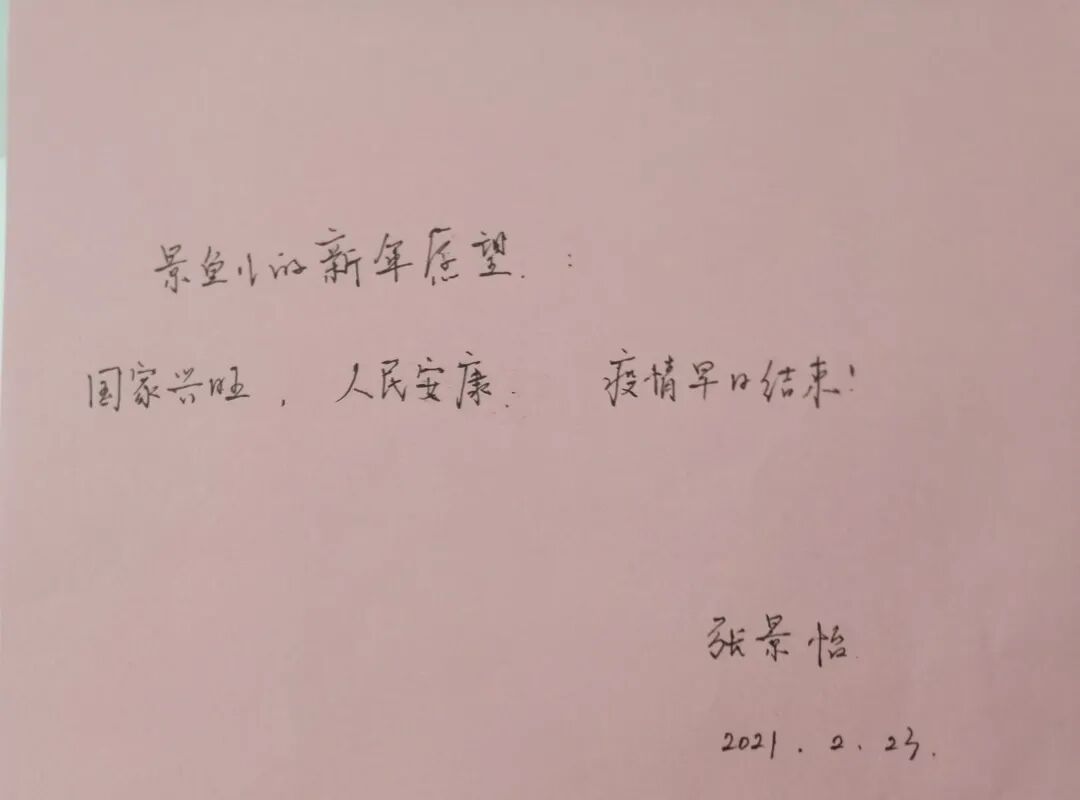 景鱼儿的新年愿望：
国家兴旺，人民安康. 疫情早日结束!
张景怡
2021.2.23.